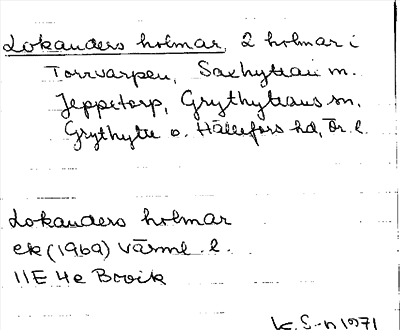 Lokanders holmar, 2 holmar i
Torrvarpen, Saxhyttan m.
Jeppetorp, Grythyttans sn,
Grythytte o. Hällefors hd, Ör. l.
Lokanders holmar
ek (1969) Värml. l.
11E 4e Bovik
K. S-n 1971